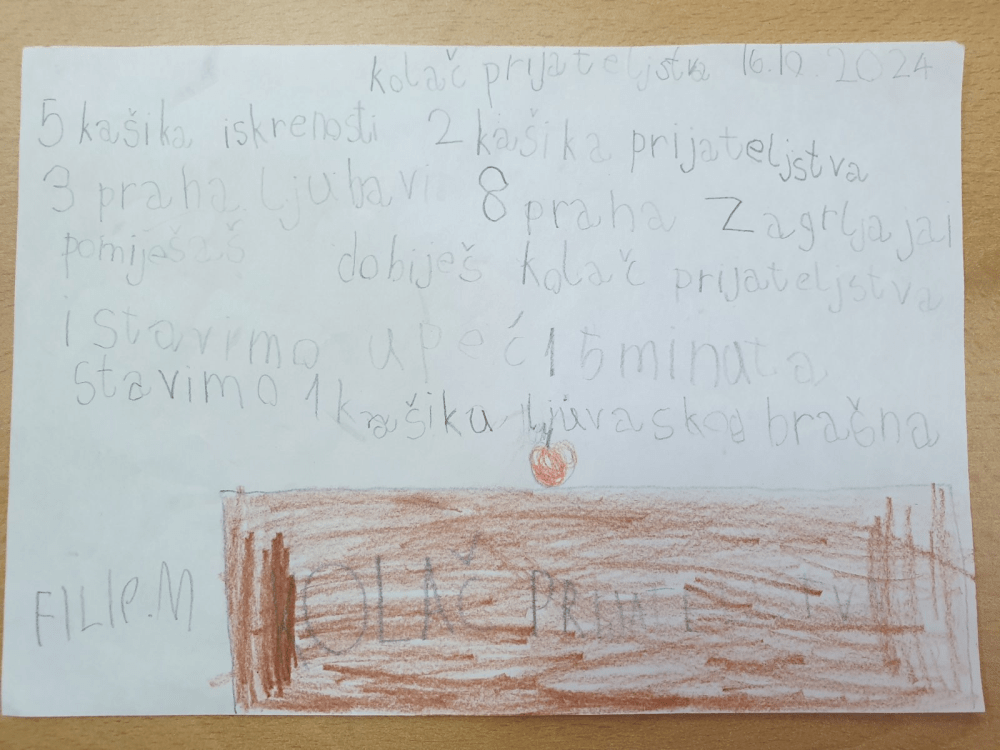 kolač prijateljstva 16.12.2024
5 kašika iskrenosti 2 kašika prijateljstva
3 praha ljubavi 8 praha zagrljaja i
pomiješaš dobiješ kolač prijateljstva
i stavimo u peć 15 minuta
stavimo 1 kašiku ljuvaskog brašna
FILIP.M KOLAČ